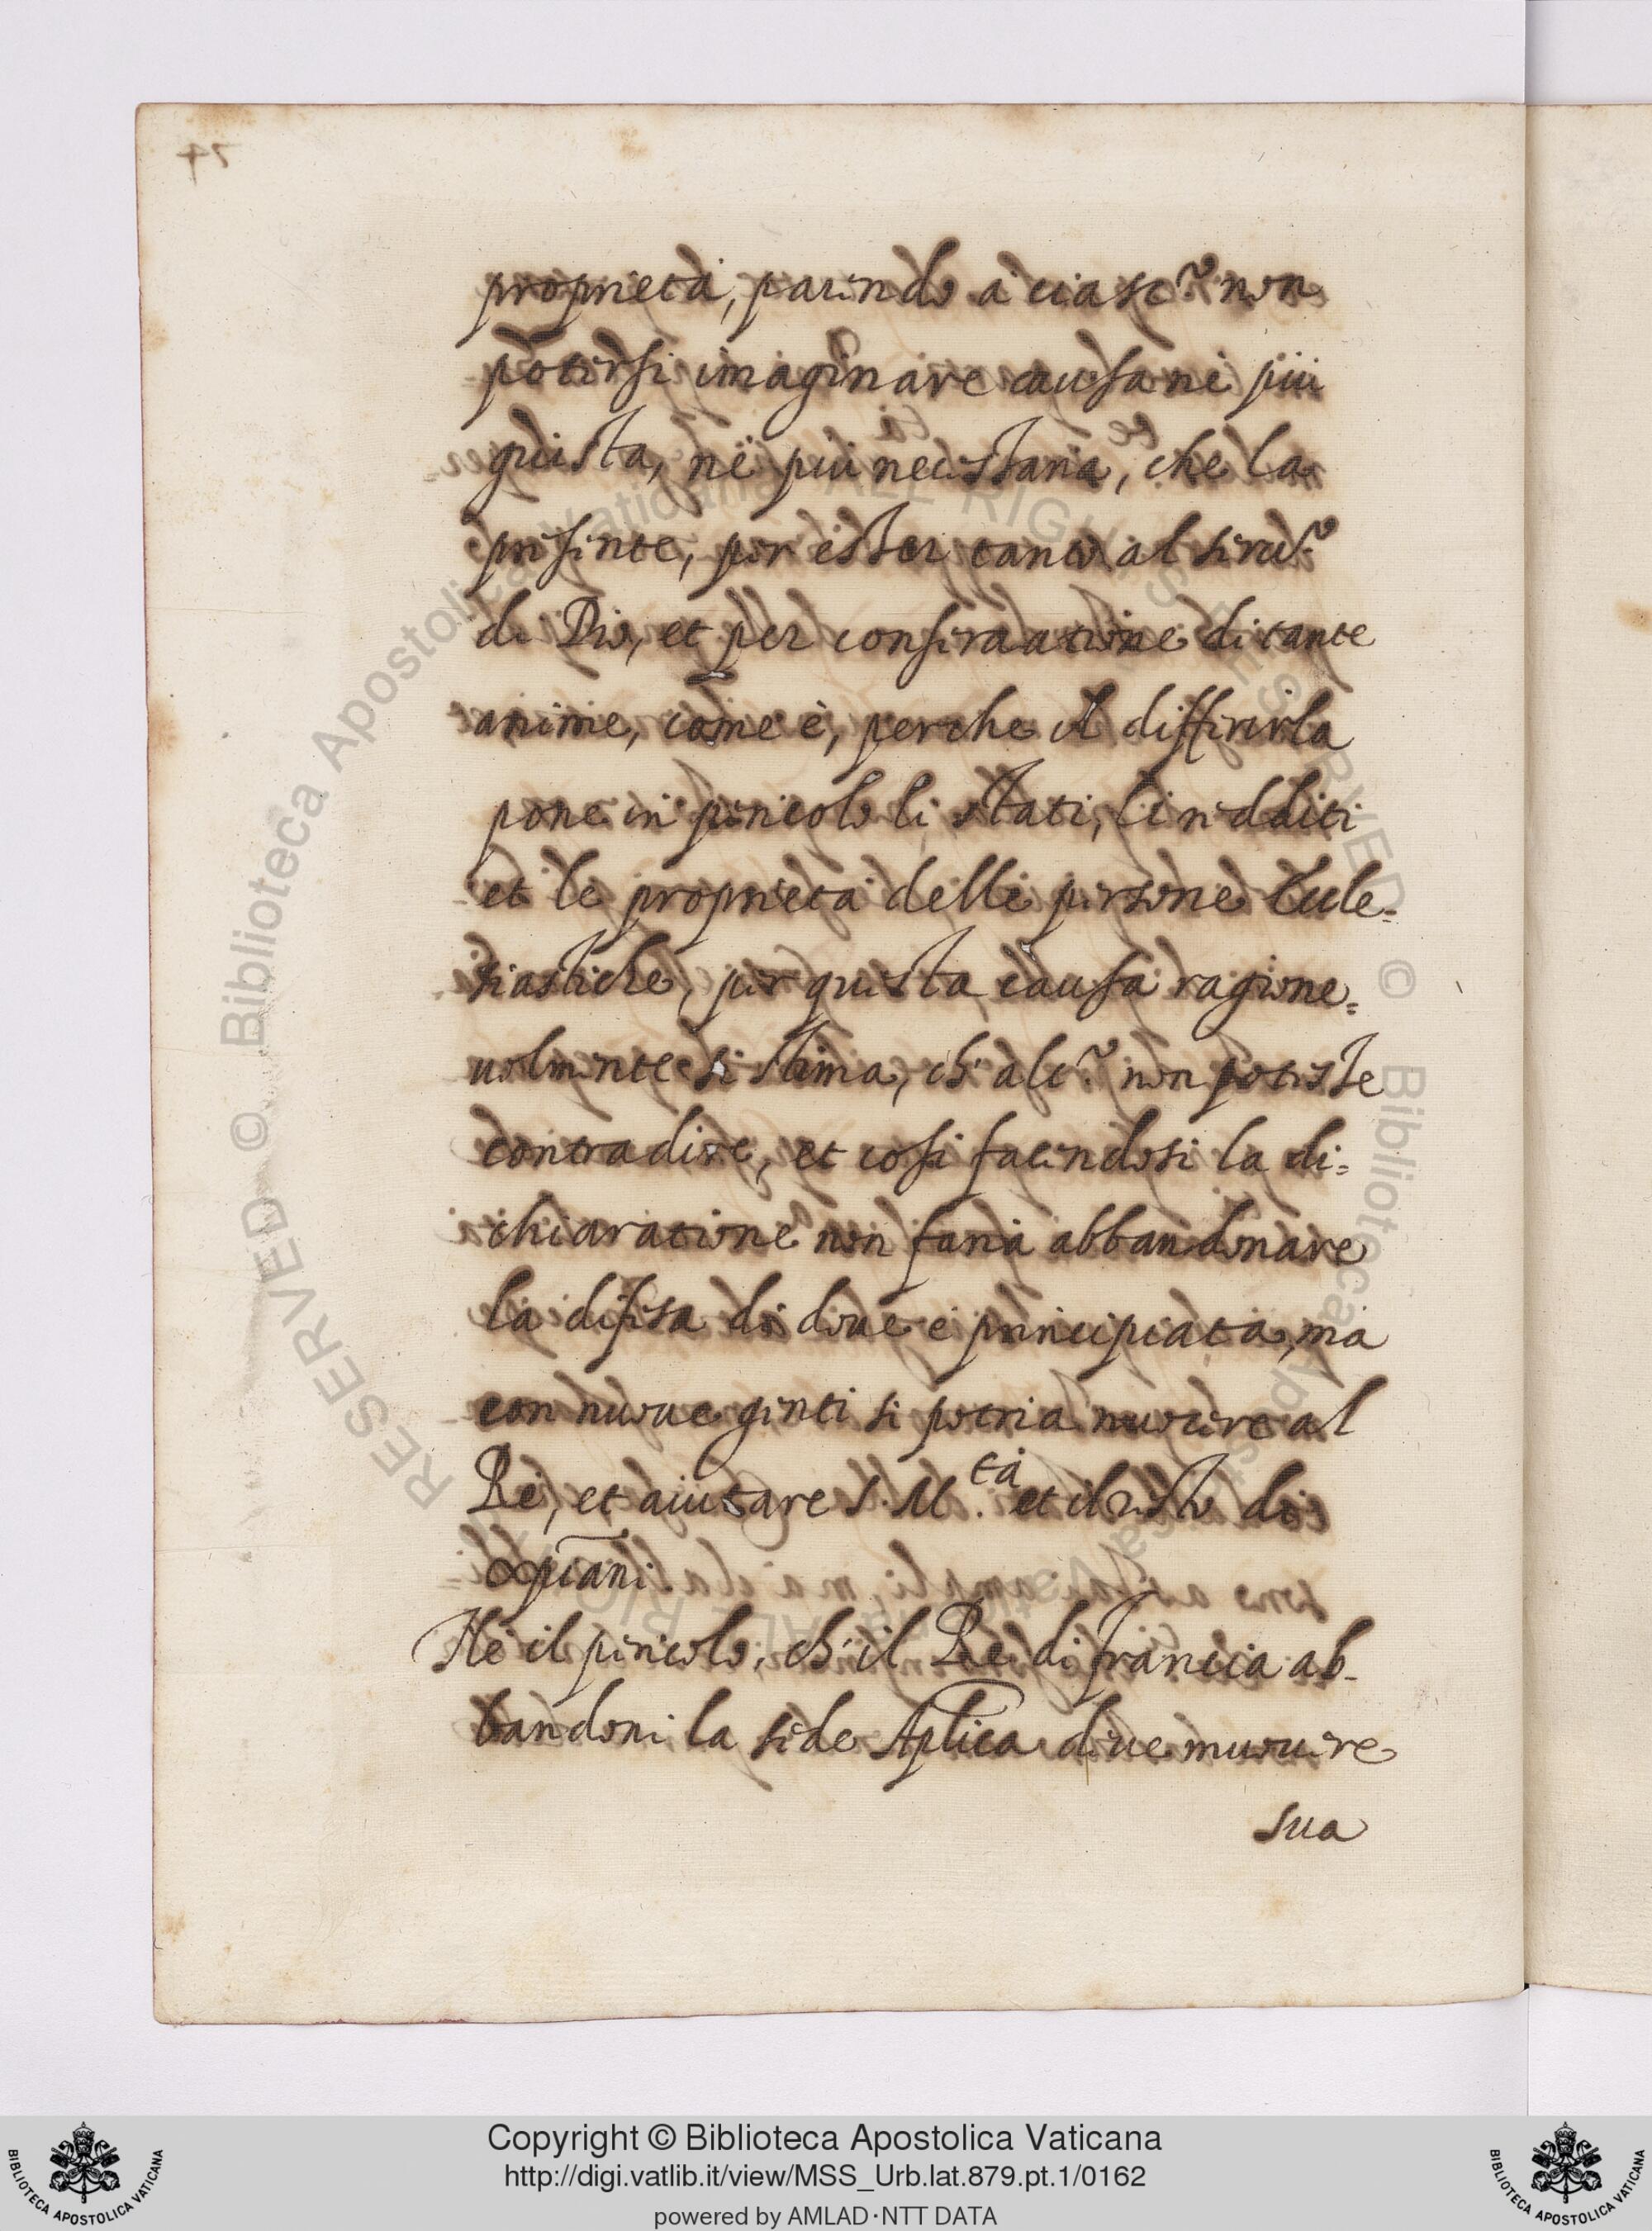 proprietà, parendo à ciasc.º non
potersi imaginare causa nè più
giusta, nè più necessaria, che la
presente, per esser tanto al seru.º
di Dio, et per conseruatione di tante
anime, come è, perche il differirla
pone in pericolo li stati, li redditi
et le proprietà delle persone Eccle=
siastiche, per questa causa ragione=
uolmente si stima, ch' alc.º non potesse
contradire, et cosi facendosi la di=
chiaratione non faria abbandonare
la difesa di doue è principiata, ma
con nuoue genti si potria nuocere al
Rè, et aiutare S. M.tà et il resto di
xpiani
Nè il pericolo, ch' il Rè di Francia ab-
bandoni la sede Aplica deue muouere
sua
74
Copyright © Biblioteca Apostolica Vaticana
http://digi.vatlib.it/view/MSS_Urb.lat.879.pt.1/0162
powered by AMLAD·NTT DATA
BIBLIOTECA APOSTOLICA VATICANA
BIBLIOTECA APOSTOLICA VATICANA